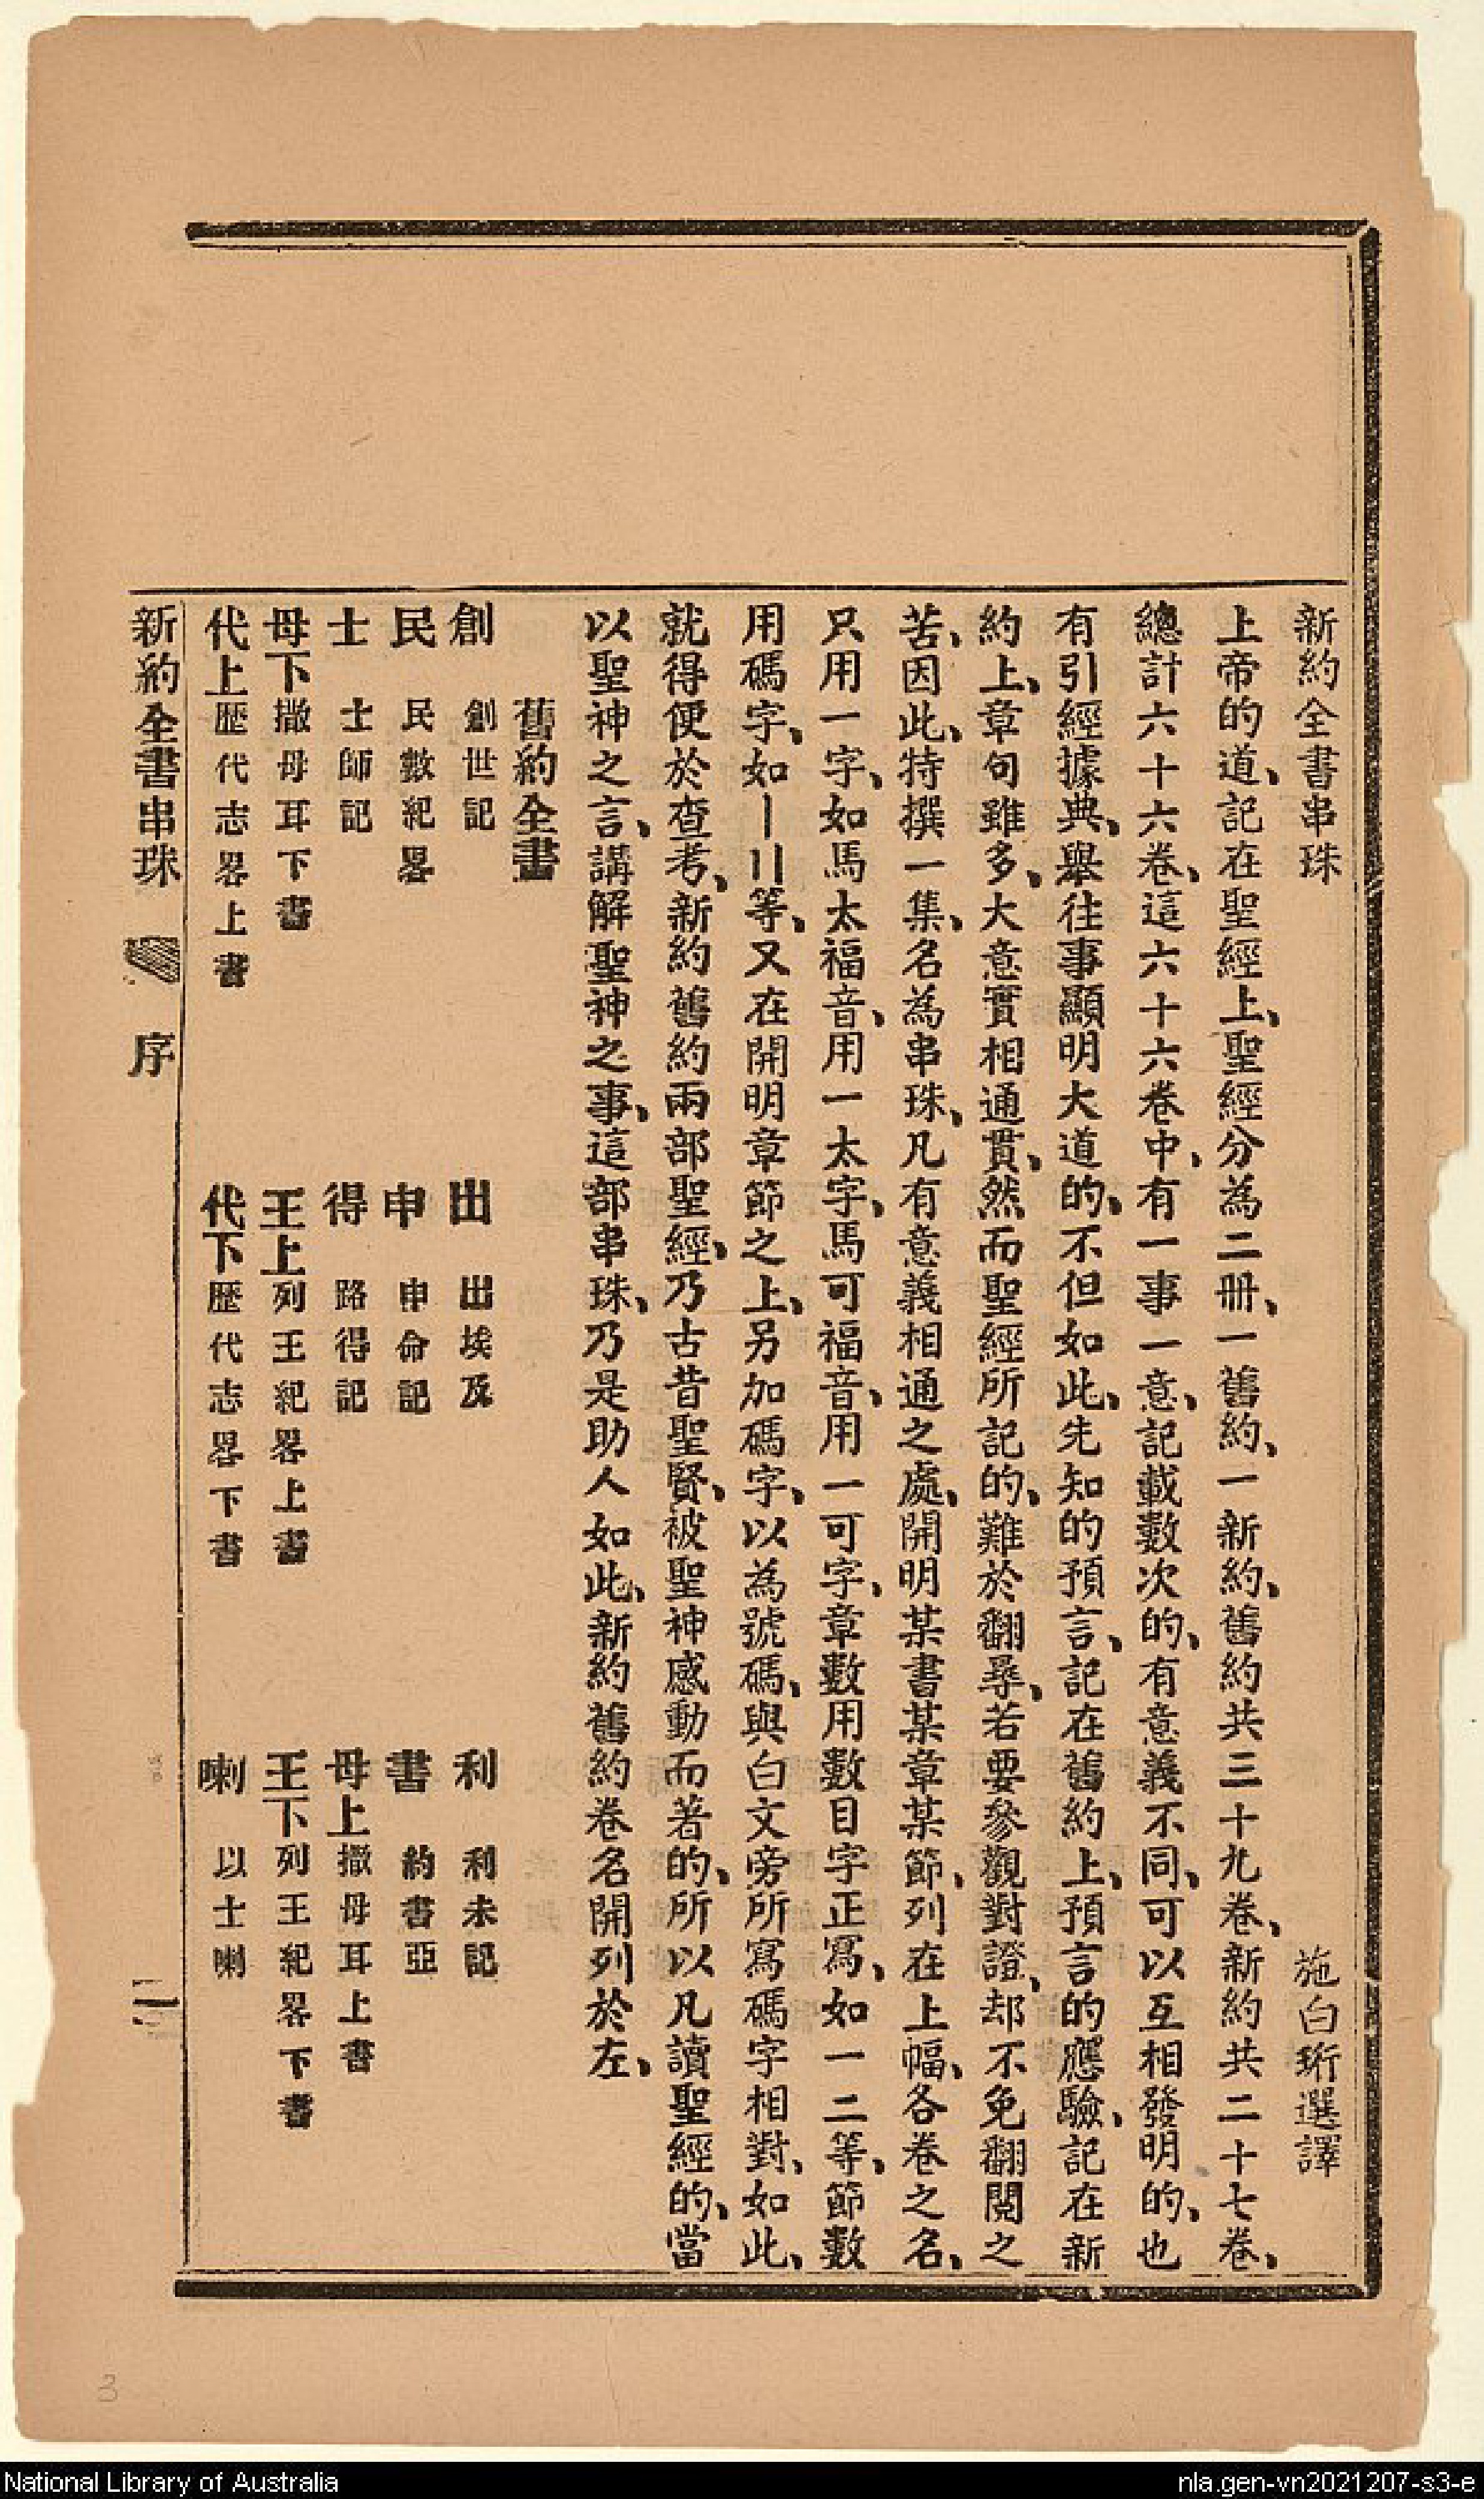 新約全書串珠　施白珩選譯
上帝的道、記在聖經上、聖經分為二冊、一舊約、一新約、舊約共三十九卷、新約共二十七卷、
總計六十六卷、這六十六卷中、有一事一意、記載數次的、有意義不同、可以互相發明的、也
有引經據典、舉往事顯明大道的、不但如此、先知的預言、記在舊約上、預言的應驗、記在新
約上、章句雖多、大意實相通貫、然而聖經所記的、難於翻尋、若要參觀對證、却不免翻閱之
苦、因此、特撰一集、名為串珠、凡有意義相通之處、開明某書某章某節、列在上幅、各卷之名、
只用一字、如馬太福音、用一太字、馬可福音、用一可字、章數用數目字正寫、如一二等、節數
用碼字、如〡〢等、又在開明章節之上、另加碼字、以為號碼、與白文旁所寫碼字相對、如此、
就得便於查考、新約舊約兩部聖經、乃古昔聖賢、被聖神感動而著的、所以凡讀聖經的、當
以聖神之言、講解聖神之事、這部串珠、乃是助人如此、新約舊約卷名開列於左、
舊約全書
創　創世記　出　出埃及　利　利未記
民　民數紀畧　申　申命記　書　約書亞
士　士師記　得　路得記　母上　撒母耳上書
母下　撒母耳下書　王上　列王紀畧上書　王下　列王紀畧下書
代上　歷代志畧上書　代下　歷代志畧下書　喇　以士喇
新約全書串珠　序　一
3
National Library of Australia
nla.gen-vn2021207-s3-e